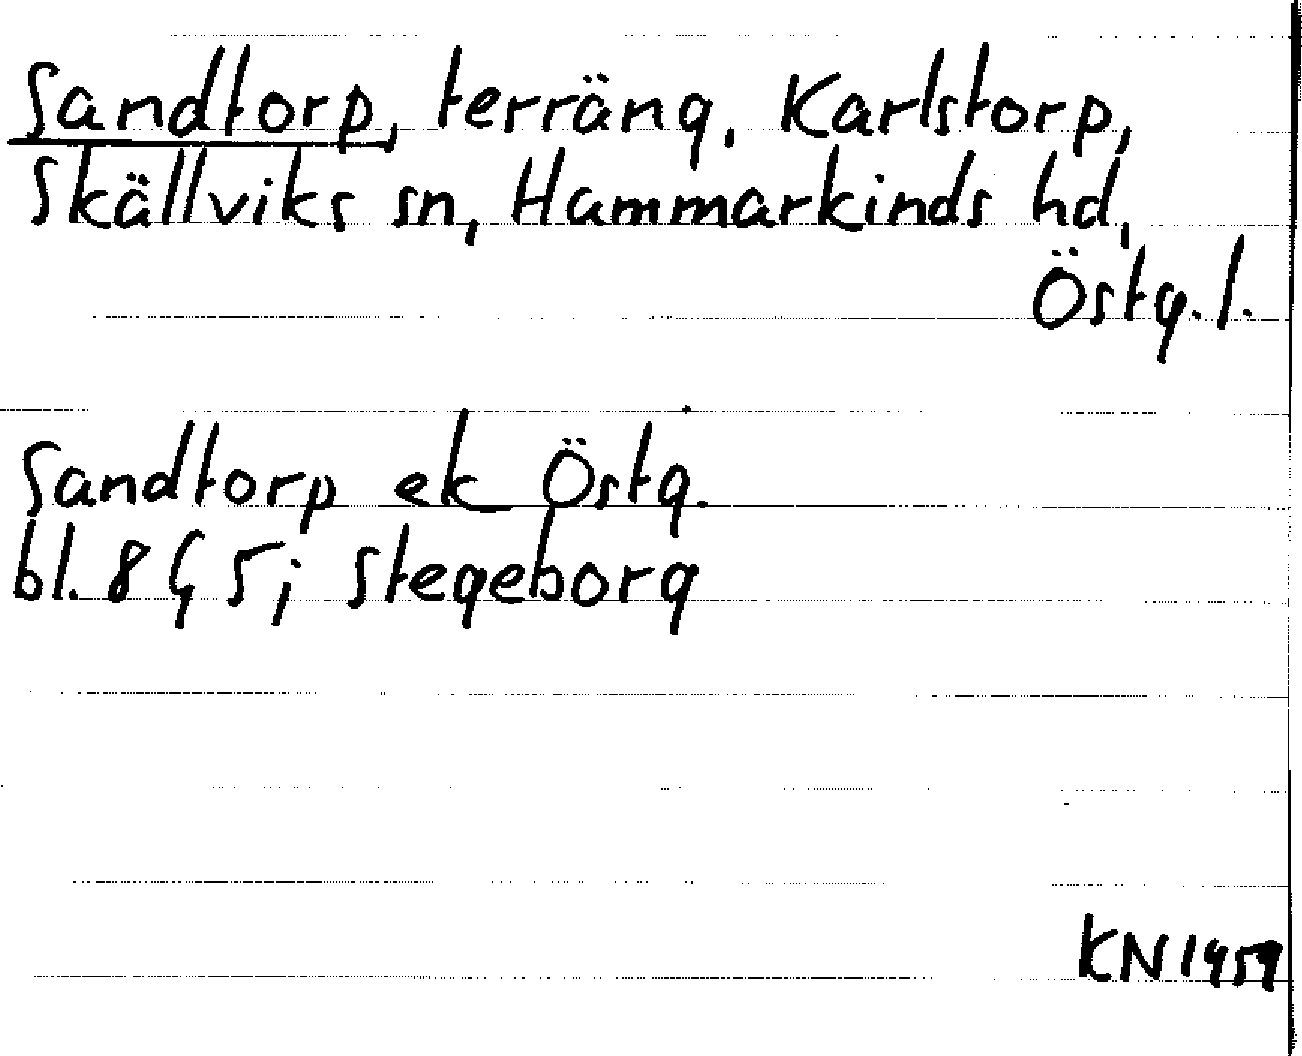 Sandtorp, terräng, Karlstorp,
Skällviks sn, Hammarkinds hd,
Östg. l.
Sandtorp ek Östg.
bl. 8 G 5 j Stegeborg
KN 1959